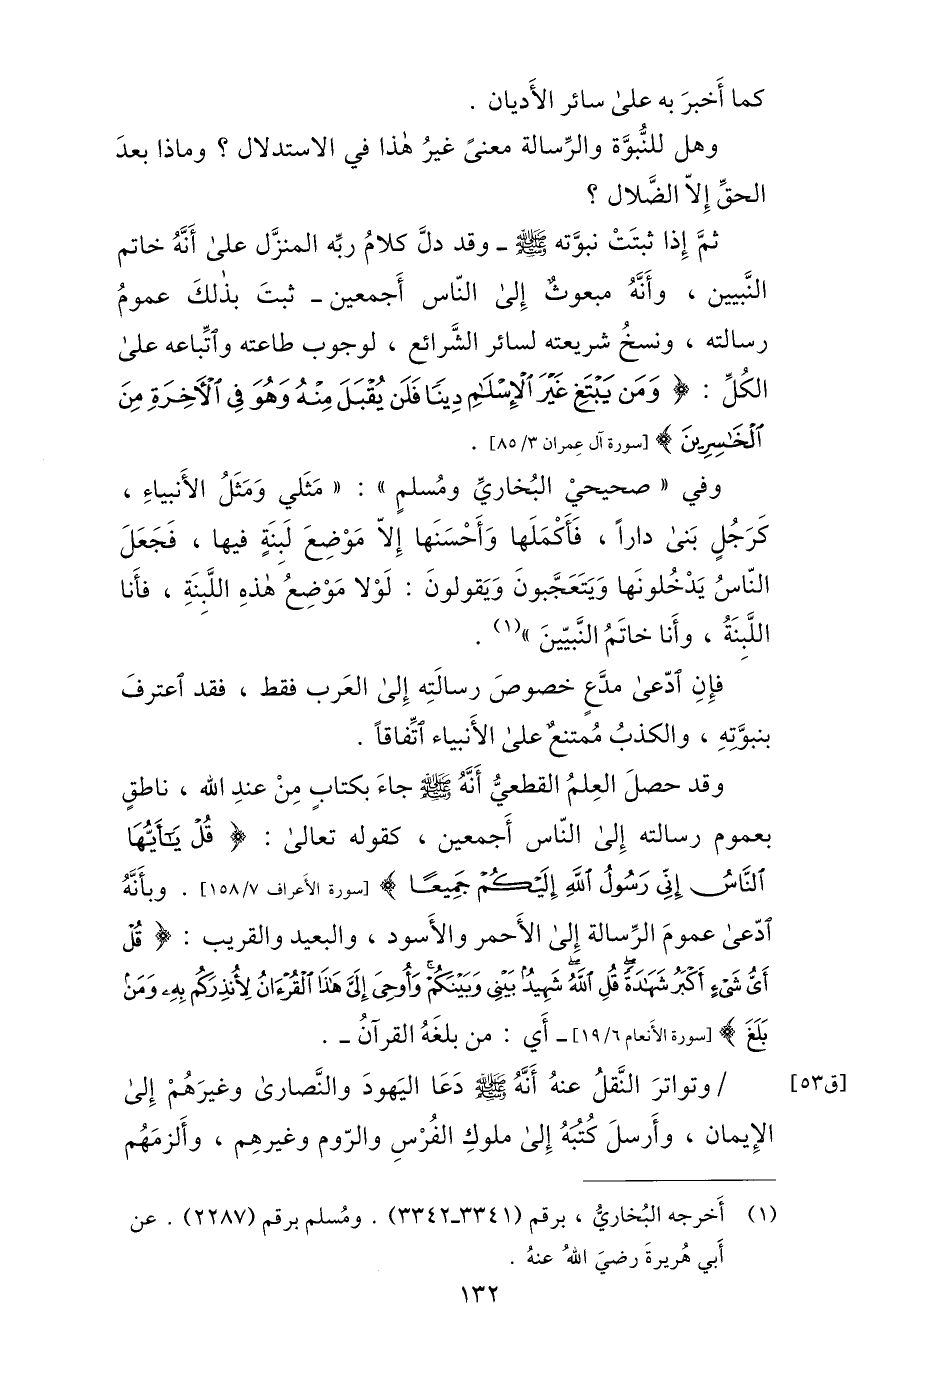 كما أَخبرَ به علىٰ سائر الأَديان .
وهل للنُّبوَّة والرِّسالة معنىً غيرُ هٰذا في الاستدلال ؟ وماذا بعدَ
الحقِّ إِلاّ الضَّلال ؟
ثمَّ إِذا ثبتَتْ نبوَّته ﷺ ـ وقد دلَّ كلامُ ربِّه المنزَّل علىٰ أَنَّهُ خاتم
النَّبيين ، وأَنَّهُ مبعوثٌ إِلىٰ النّاس أَجمعين ـ ثبتَ بذٰلكَ عمومُ
رسالته ، ونسخُ شريعته لسائر الشَّرائع ، لوجوب طاعته وٱتِّباعه علىٰ
الكُلِّ : ﴿ وَمَن يَبْتَغِ غَيْرَ ٱلْإِسْلَٰمِ دِينًا فَلَن يُقْبَلَ مِنْهُ وَهُوَ فِى ٱلْأَخِرَةِ مِنَ
ٱلْخَٰسِرِينَ ﴾ [سورة آل عمران ٣/ ٨٥] .
وفي « صحيحيْ البُخاريِّ ومُسلمٍ » : « مَثَلي وَمَثَلُ الأَنبياءِ ،
كَرَجُلٍ بَنىٰ داراً ، فَأَكْمَلَها وَأَحْسَنَها إِلاّ مَوْضِعَ لَبِنَةٍ فيها ، فَجَعَلَ
النّاسُ يَدْخُلونَها وَيَتَعَجَّبونَ وَيَقولونَ : لَوْلا مَوْضِعُ هٰذهِ اللَّبِنَةِ ، فأَنا
اللَّبِنَةُ ، وأَنا خاتَمُ النَّبيّينَ »(١) .
فإِنِ ٱدّعىٰ مدَّعٍ خصوصَ رسالَتِه إِلىٰ العَرب فقط ، فقد ٱعترفَ
بنبوَّتِهِ ، والكذبُ مُمتنعٌ علىٰ الأَنبياء ٱتِّفاقاً .
وقد حصلَ العِلمُ القطعيُّ أَنَّهُ ﷺ جاءَ بكتابٍ مِنْ عندِ الله ، ناطقٍ
بعموم رسالته إِلىٰ النّاس أَجمعين ، كقوله تعالىٰ : ﴿ قُلْ يَٰٓأَيُّهَا
ٱلنَّاسُ إِنِّى رَسُولُ ٱللَّهِ إِلَيْكُمْ جَمِيعًا ﴾ [سورة الأعراف ٧/ ١٥٨] . وبأَنَّهُ
ٱدّعىٰ عمومَ الرِّسالة إِلىٰ الأَحمر والأَسود ، والبعيد والقريب : ﴿ قُلْ
أَىُّ شَىْءٍ أَكْبَرُ شَهَٰدَةً قُلِ ٱللَّهُ شَهِيدٌۢ بَيْنِى وَبَيْنَكُمْ وَأُوحِىَ إِلَىَّ هَٰذَا ٱلْقُرْءَانُ لِأُنذِرَكُم بِهِۦ وَمَنۢ
بَلَغَ ﴾ [سورة الأنعام ٦/ ١٩] ـ أَي : من بلغَهُ القرآنُ ـ .
[ق٥٣] / وتواترَ النَّقلُ عنهُ أَنَّهُ ﷺ دَعَا اليَهودَ والنَّصارىٰ وغيرَهُمْ إِلىٰ
الإِيمان ، وأَرسلَ كُتُبَهُ إِلىٰ ملوكِ الفُرْسِ والرّوم وغيرهِم ، وأَلزمَهُم
(١) أَخرجه البُخاريُّ ، برقم (٣٣٤١ـ٣٣٤٢) . ومُسلم برقم (٢٢٨٧) . عن
أَبي هُريرةَ رضيَ اللهُ عنهُ .
١٣٢